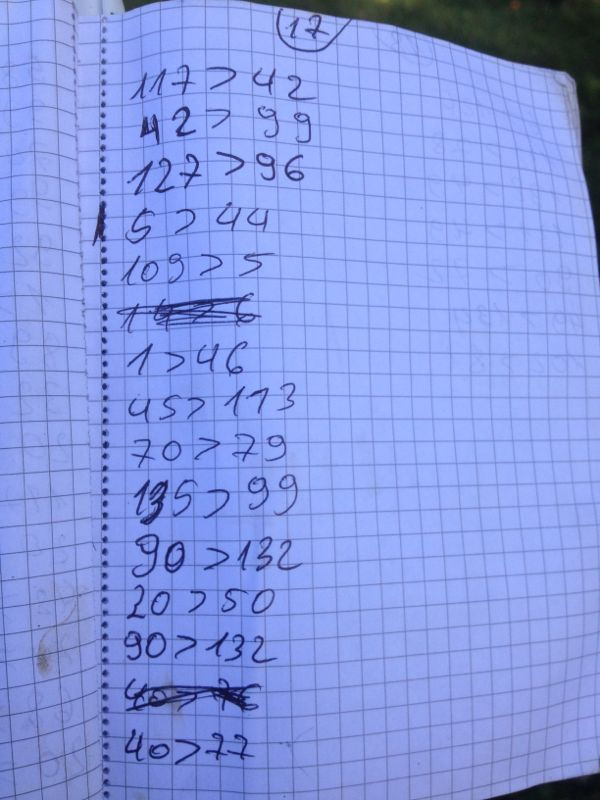 17
117 > 42
42 > 99
127 > 96
5 > 44
109 > 5
1 > 46
45 > 113
70 > 79
135 > 99
90 > 132
20 > 50
90 > 132
40 > 76
40 > 77